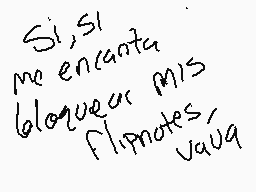 Si, si
me encanta
bloquear mis
flipnotes,
vava